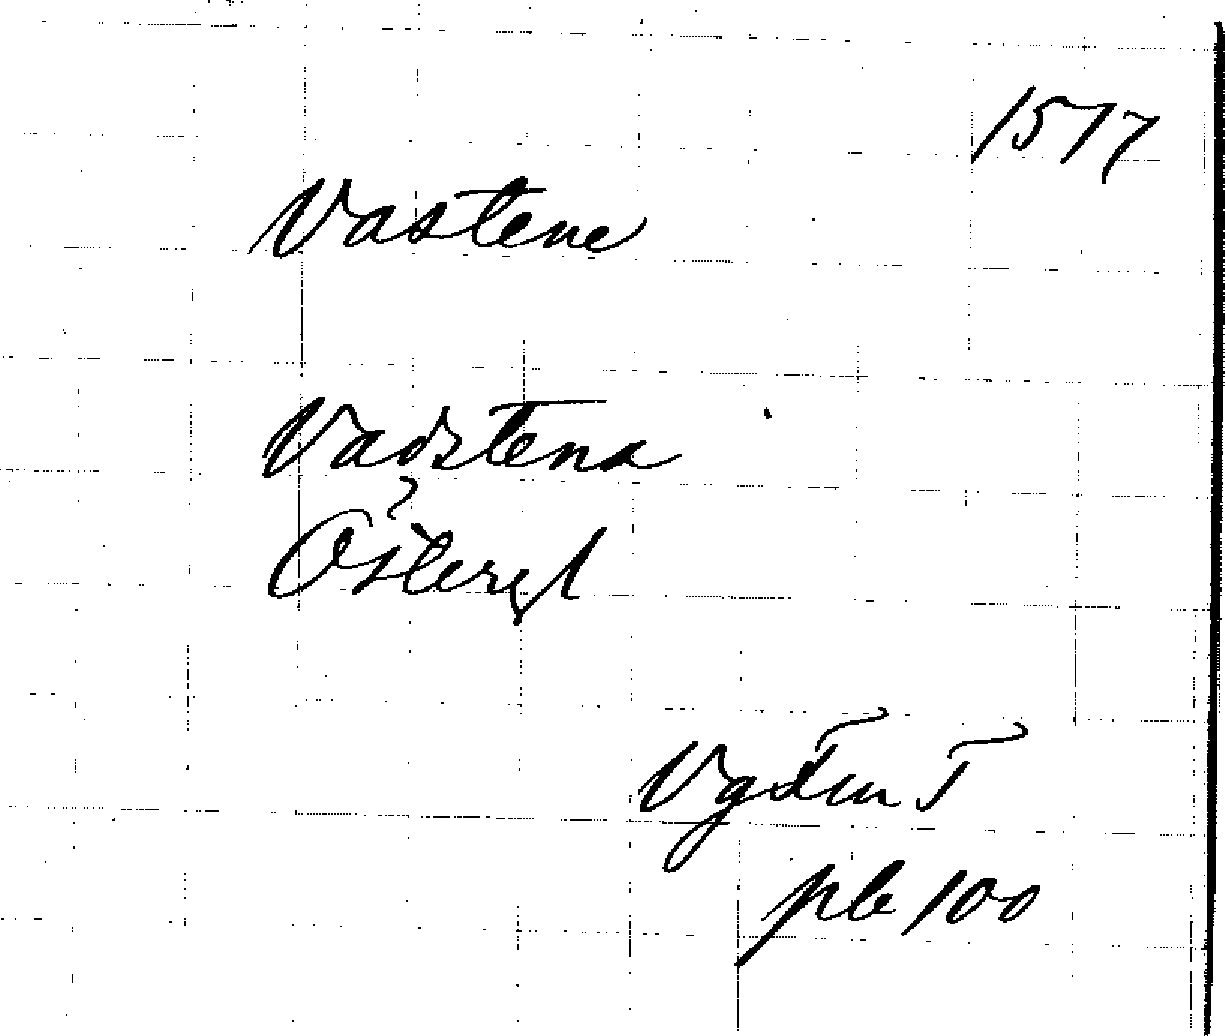 1577
Vastene
Vadstena
Östergl
VgFmT
pb 100